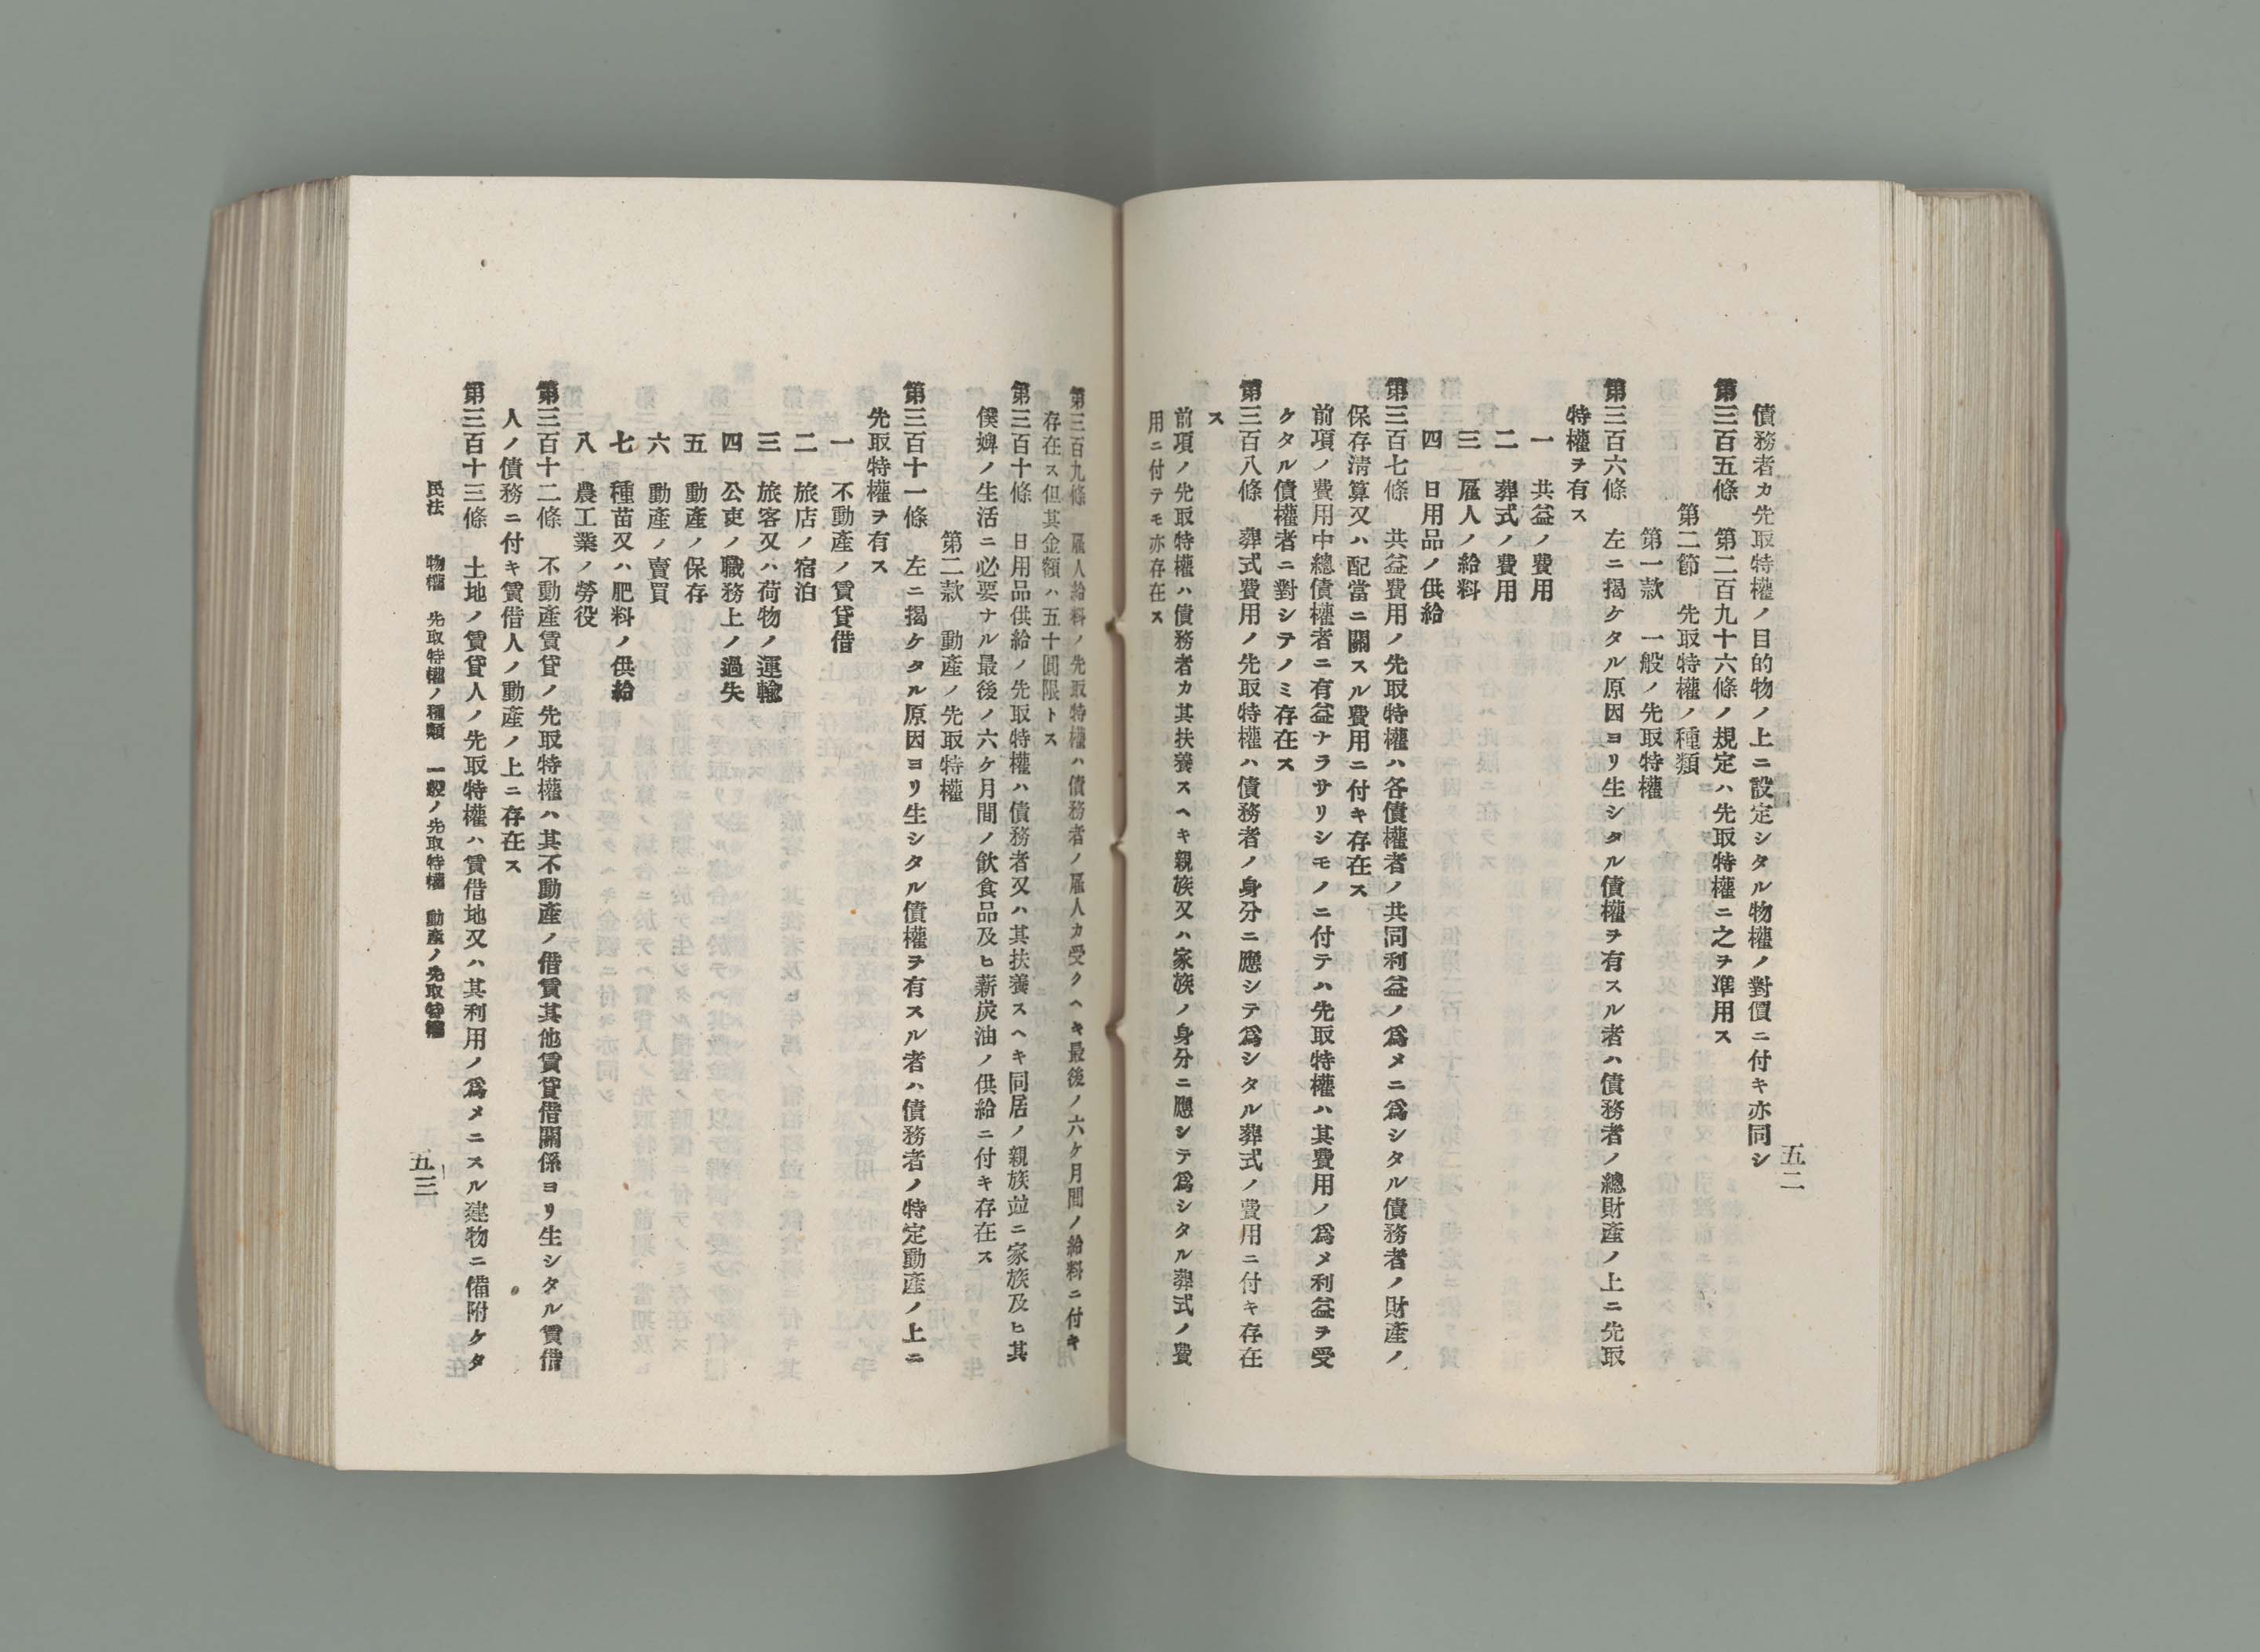 債務者カ先取特權ノ目的物ノ上ニ設定シタル物權ノ對價ニ付キ亦同シ
第三百五條　第二百九十六條ノ規定ハ先取特權ニ之ヲ準用ス
第二節　先取特權ノ種類
第一款　一般ノ先取特權
第三百六條　左ニ揭ケタル原因ヨリ生シタル債權ヲ有スル者ハ債務者ノ總財產ノ上ニ先取
特權ヲ有ス
一　共益ノ費用
二　葬式ノ費用
三　雇人ノ給料
四　日用品ノ供給
第三百七條　共益費用ノ先取特權ハ各債權者ノ共同利益ノ爲メニ爲シタル債務者ノ財產ノ
保存淸算又ハ配當ニ關スル費用ニ付キ存在ス
前項ノ費用中總債權者ニ有益ナラサリシモノニ付テハ先取特權ハ其費用ノ爲メ利益ヲ受
ケタル債權者ニ對シテノミ存在ス
第三百八條　葬式費用ノ先取特權ハ債務者ノ身分ニ應シテ爲シタル葬式ノ費用ニ付キ存在
ス
前項ノ先取特權ハ債務者カ其扶養スヘキ親族又ハ家族ノ身分ニ應シテ爲シタル葬式ノ費
用ニ付テモ亦存在ス
五二
第三百九條　雇人給料ノ先取特權ハ債務者ノ雇人カ受クヘキ最後ノ六ケ月間ノ給料ニ付キ
存在ス但其金額ハ五十圓限トス
第三百十條　日用品供給ノ先取特權ハ債務者又ハ其扶養スヘキ同居ノ親族竝ニ家族及ヒ其
僕婢ノ生活ニ必要ナル最後ノ六ケ月間ノ飮食品及ヒ薪炭油ノ供給ニ付キ存在ス
第二款　動產ノ先取特權
第三百十一條　左ニ揭ケタル原因ヨリ生シタル債權ヲ有スル者ハ債務者ノ特定動產ノ上ニ
先取特權ヲ有ス
一　不動產ノ賃貸借
二　旅店ノ宿泊
三　旅客又ハ荷物ノ運輸
四　公吏ノ職務上ノ過失
五　動產ノ保存
六　動產ノ賣買
七　種苗又ハ肥料ノ供給
八　農工業ノ勞役
第三百十二條　不動產賃貸ノ先取特權ハ其不動產ノ借賃其他賃貸借關係ヨリ生シタル賃借
人ノ債務ニ付キ賃借人ノ動產ノ上ニ存在ス
第三百十三條　土地ノ賃貸人ノ先取特權ハ賃借地又ハ其利用ノ爲メニスル建物ニ備附ケタ
民法　物權　先取特權ノ種類　一般ノ先取特權　動產ノ先取特權
五三